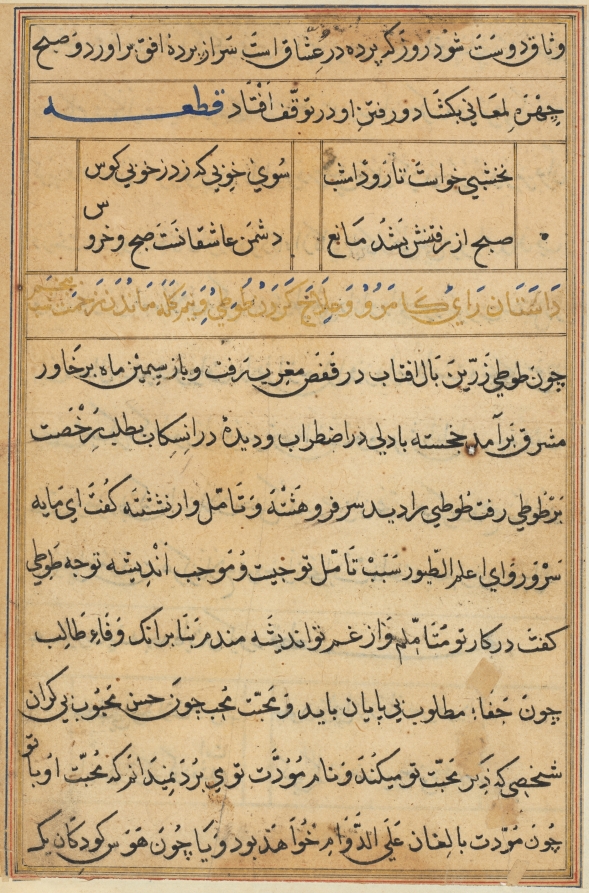 وثاق دوست شود روز که پرده در عشاق است سر از پردهٔ افق براورد و صبح
چهرهٔ لمعانی بکشاد و رفتن او در توقف افتاد قطعه
نخشبی خواست تا رود امشب سوی خوبی که زد ز خوبی کوس
صبح از رفتنش بشد مانع دشمن عاشقانست صبح و خروس
داستان رای کامرو و طوطی و شب پنجم
چون طوطی زرین بال افتاب در قفص مغرب رفت و باز سیمین ماه بر خاور
مشرق برآمد خجسته با دلی در اضطراب و دیدهٔ در انسکاب بطلب رخصت
بر طوطی رفت طوطی را دید سر فرو هشته و تامل وار نشسته کفت ای مایه
سرور و ای اعلم الطیور سبب تامل تو چیست و موجب اندیشه توجه طوطی
کفت در کار تو متاملم و از غم تو اندیشه مندم بنا برانک وفاء طالب
چون جفاء مطلوب بی پایان باید و محبت محب چون حسن محبوب بی کران
شخصی که ذکر محبت تو میکند و نام مودت تو می برد نمیدانم که محبت او با تو
چون مودت بالغان علی الدوام خواهد بود و یا چون هوس کودکان یک